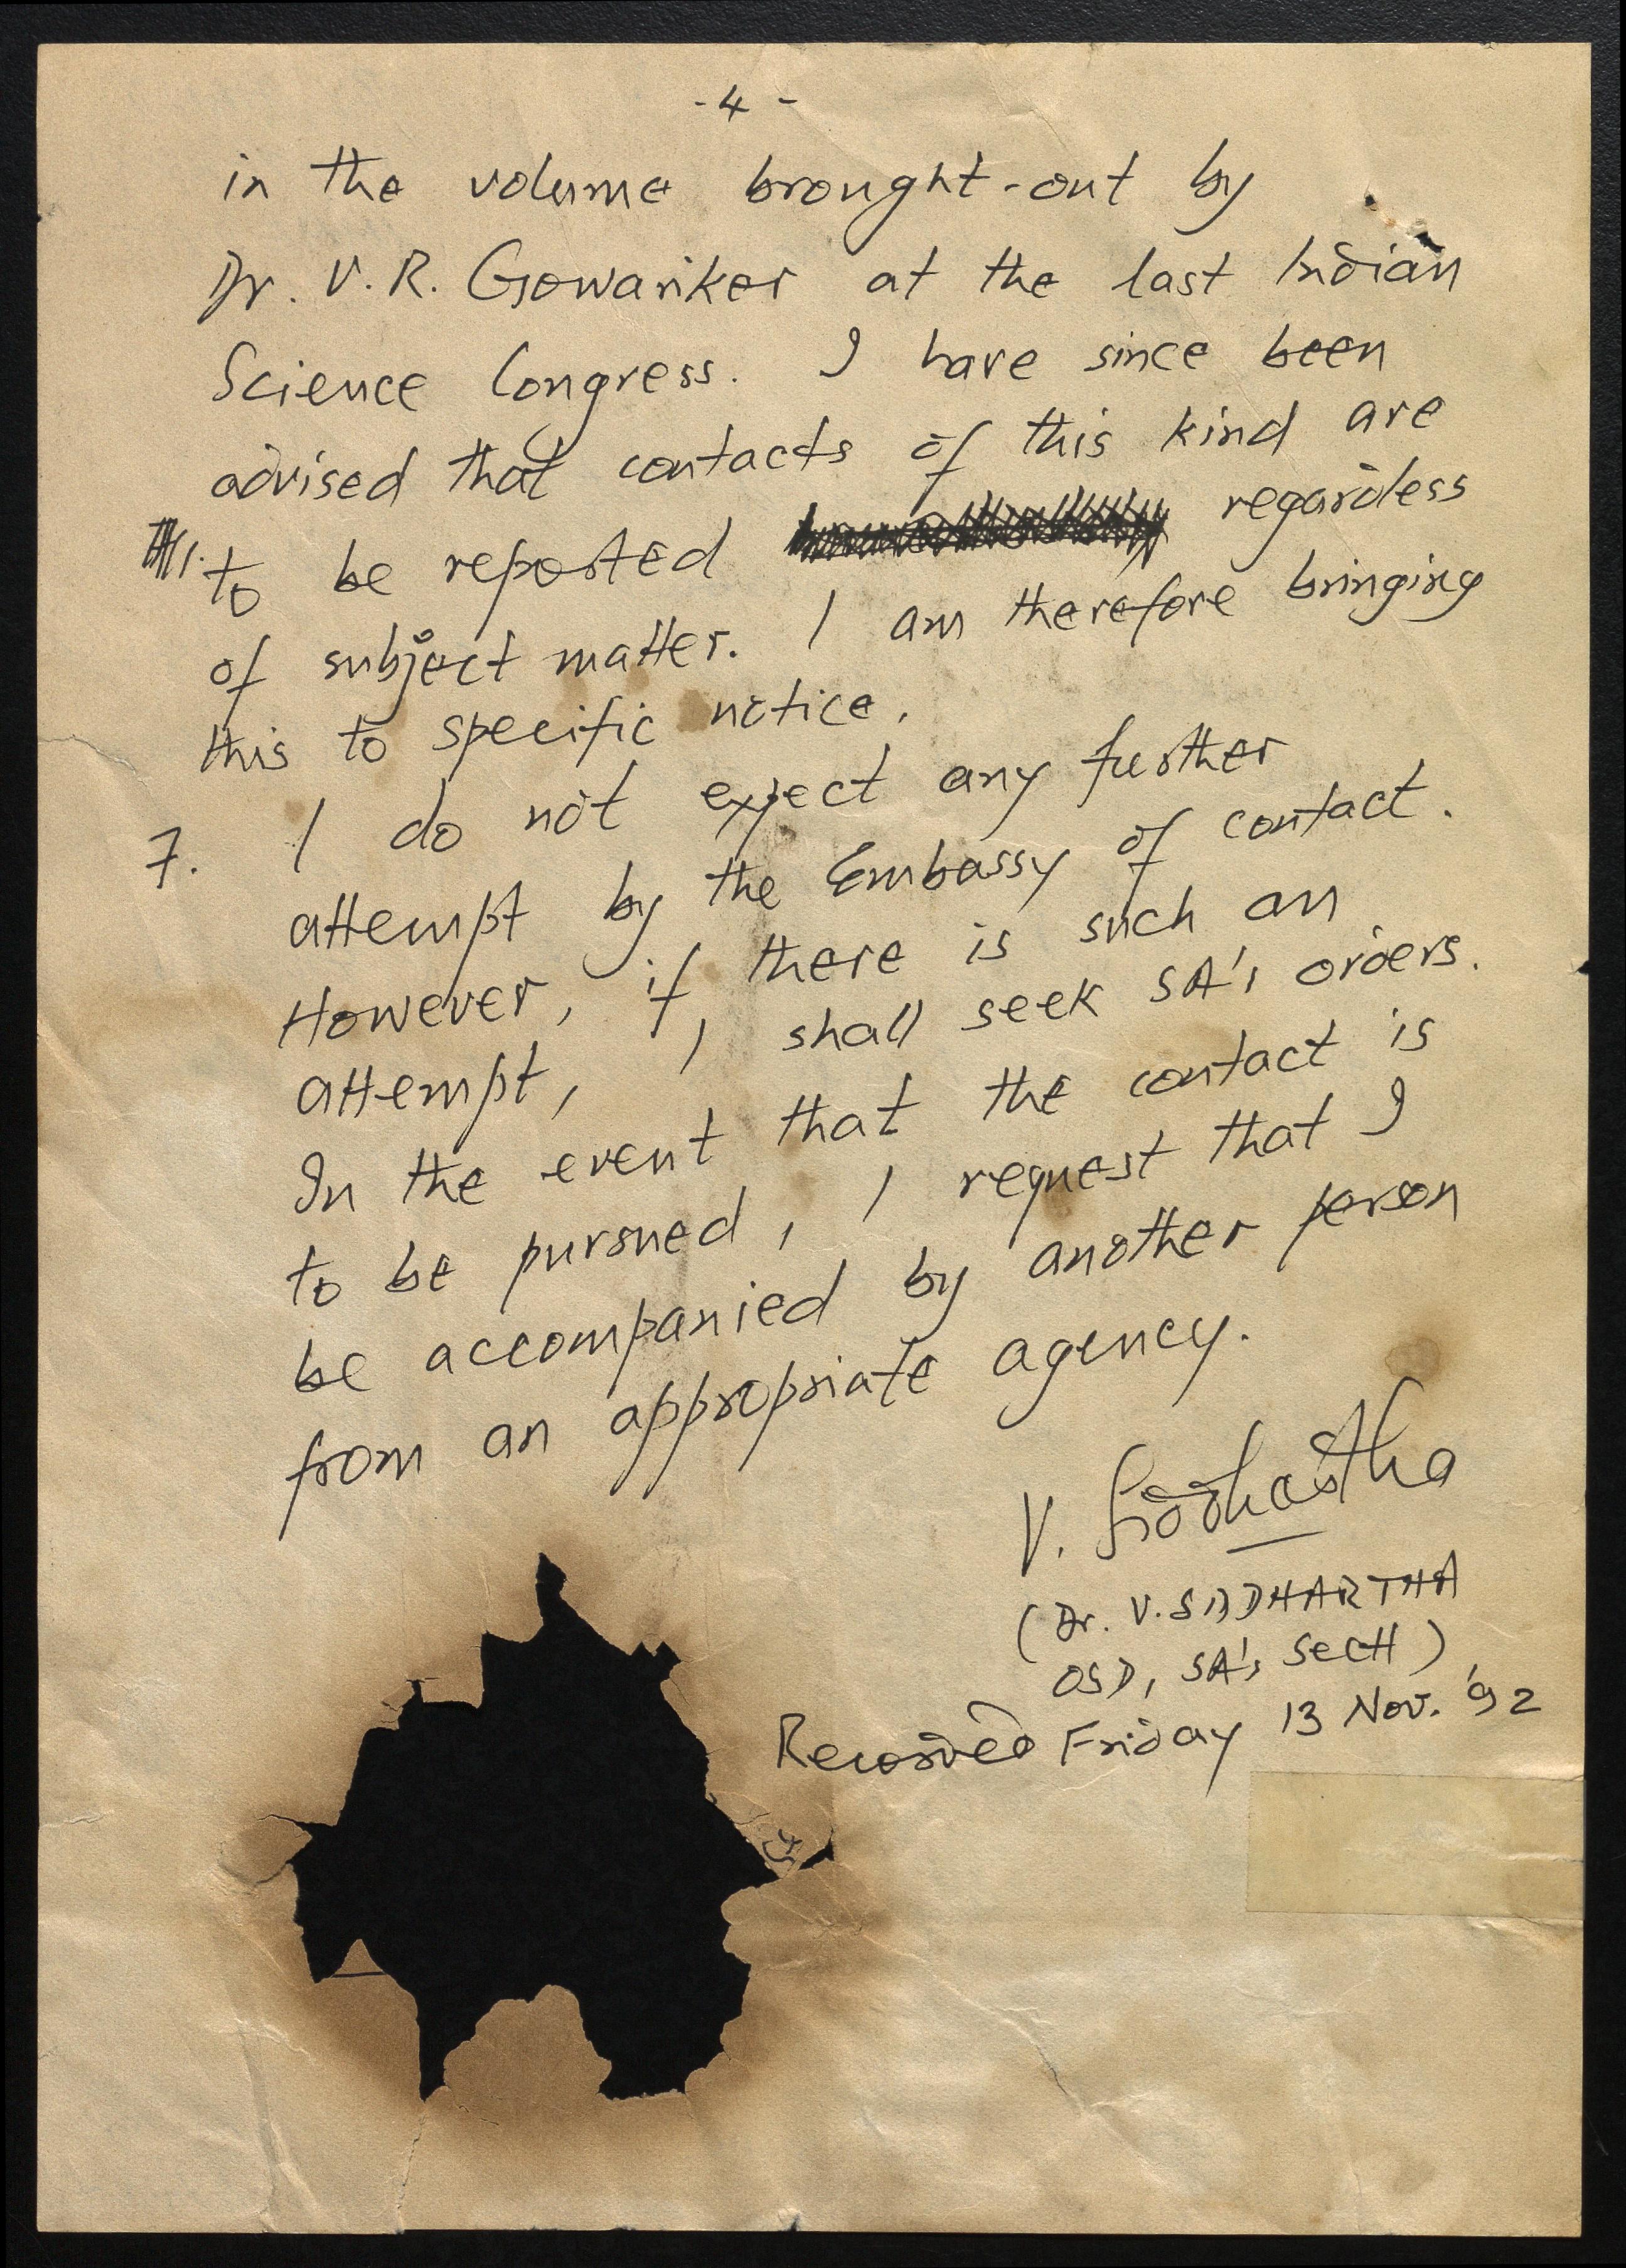 - 4 -
in the volume brought-out by
Dr. V. R. Gowariker at the last Indian
Science Congress. I have since been
advised that contacts of this kind are
to be reported regardless
of subject matter. I am therefore bringing
this to specific notice.
7. I do not expect any further
attempt by the Embassy of contact.
However, if there is such an
attempt, I shall seek SA's orders.
In the event that the contact is
to be pursued, I request that I
be accompanied by another person
from an appropriate agency.
V. Siddhartha
(Dr. V. SIDDHARTHA
OSD, SA's SECtt)
Recorded Friday 13 Nov. '92